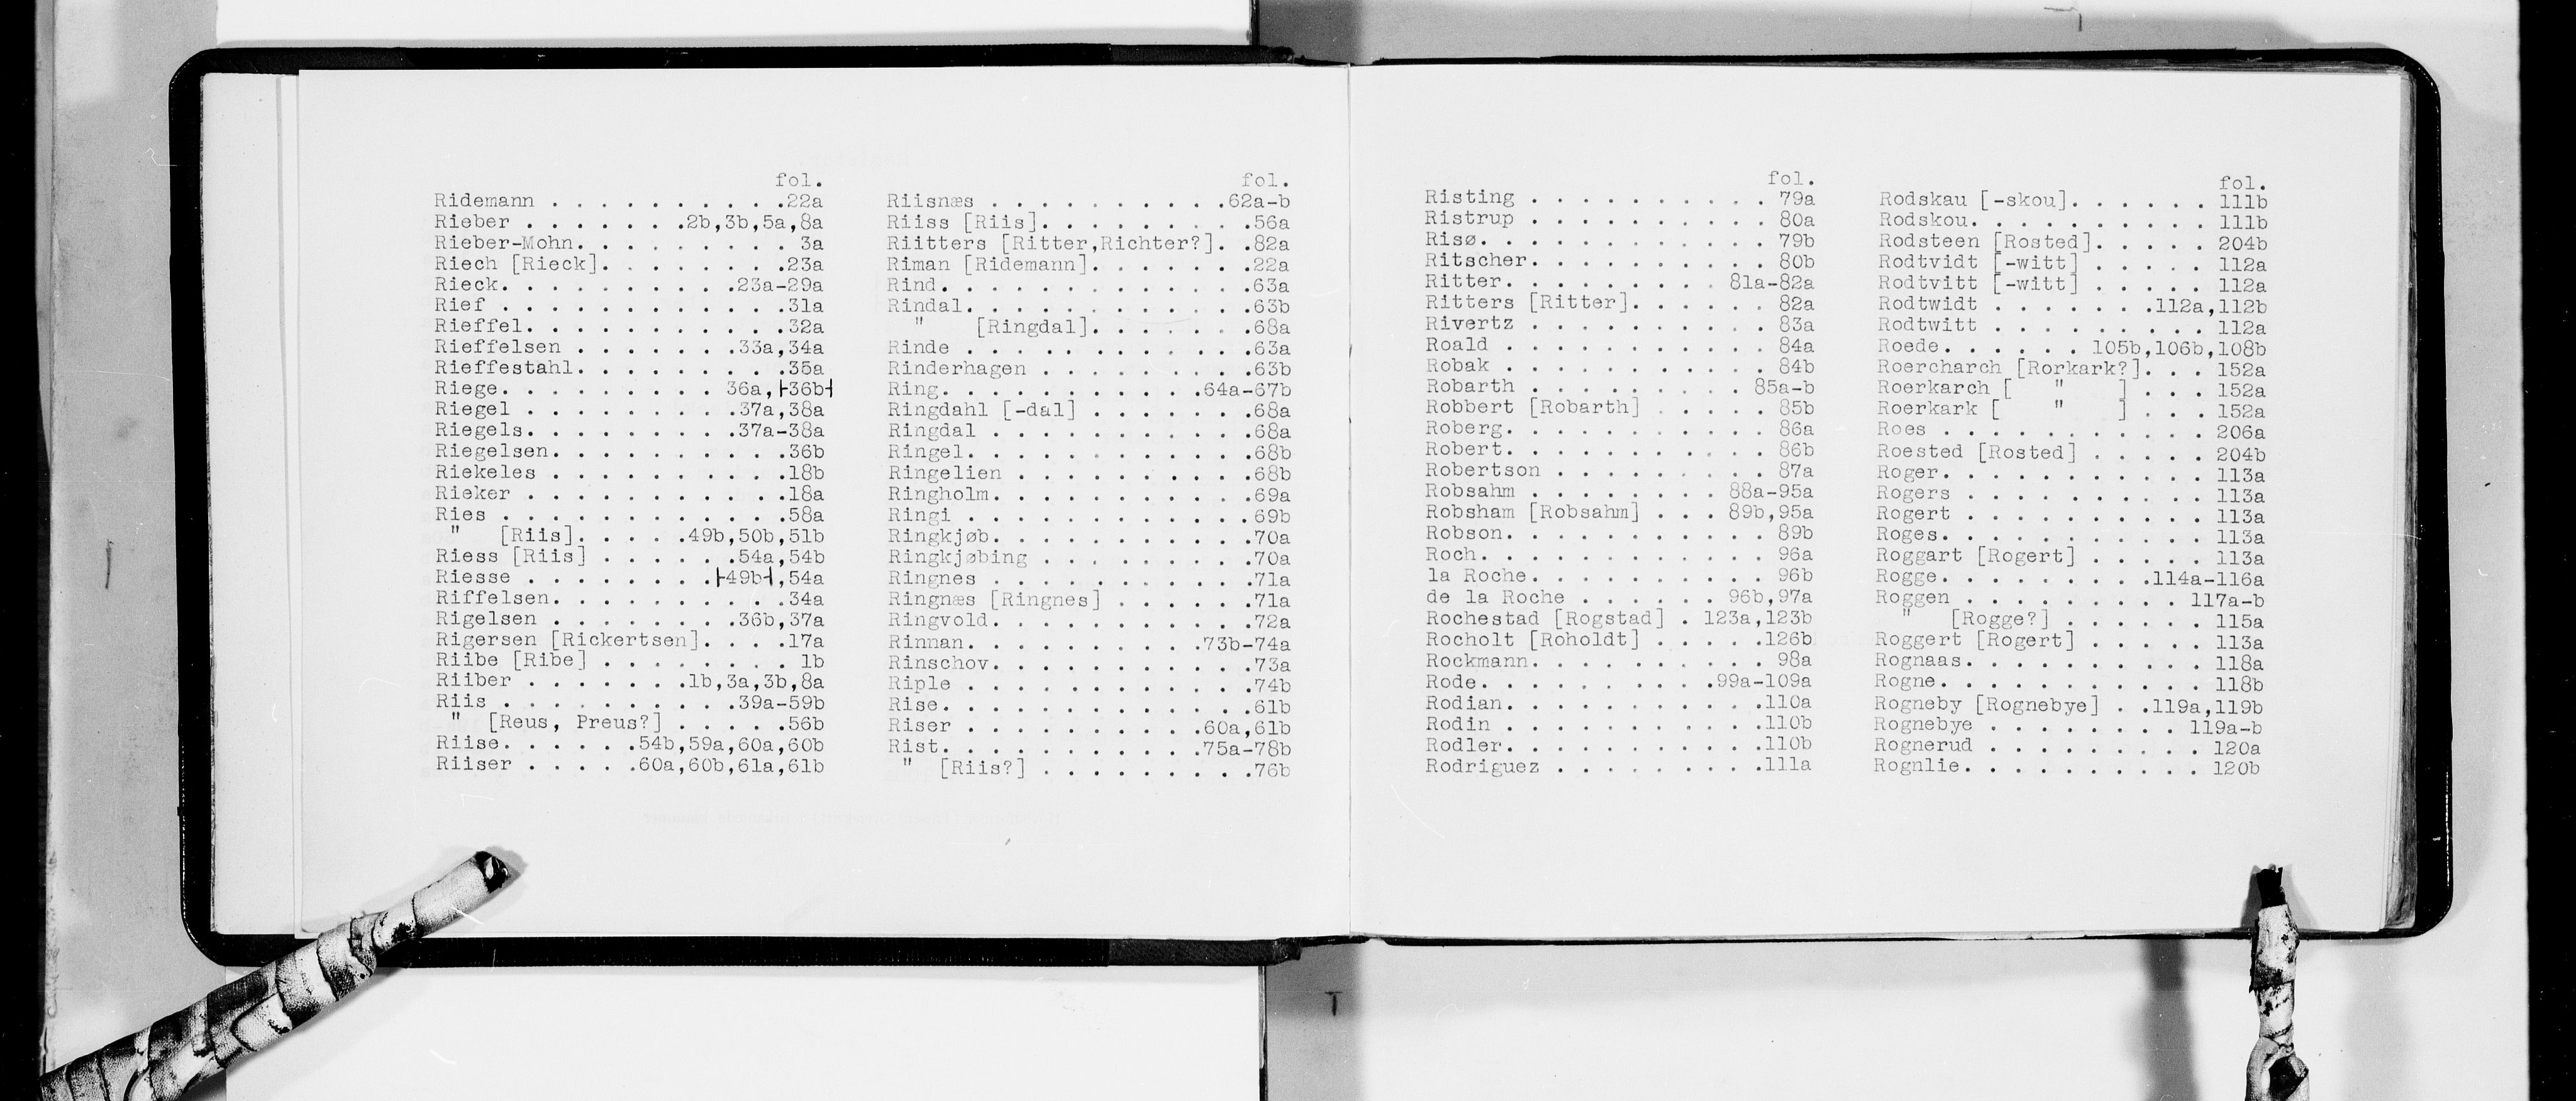 fol.
Ridemann . . . . . . . . . .22a
Rieber . . . . . . .2b,3b,5a,8a
Rieber-Mohn. . . . . . . . . 3a
Riech [Rieck]. . . . . . . .23a
Rieck. . . . . . . . . .23a-29a
Rief . . . . . . . . . . . .31a
Rieffel. . . . . . . . . . .32a
Rieffelsen . . . . . . .33a,34a
Rieffestahl. . . . . . . . .35a
Riege. . . . . . . . . 36a,⊢36b⊣
Riegel . . . . . . . . .37a,38a
Riegels. . . . . . . . .37a-38a
Riegelsen. . . . . . . . . .36b
Riekeles . . . . . . . . . .18b
Rieker . . . . . . . . . . .18a
Ries . . . . . . . . . . . .58a
" [Riis]. . . . .49b,50b,51b
Riess [Riis] . . . . . .54a,54b
Riesse . . . . . . . .⊢49b⊣,54a
Riffelsen. . . . . . . . . .34a
Rigelsen . . . . . . . .36b,37a
Rigersen [Rickertsen]. . . .17a
Riibe [Ribe] . . . . . . . . 1b
Riiber . . . . . . .1b,3a,3b,8a
Riis . . . . . . . . . .39a-59b
" [Reus, Preus?] . . . . .56b
Riise. . . . . .54b,59a,60a,60b
Riiser . . . . .60a,60b,61a,61b
fol.
Riisnæs . . . . . . . . . .62a-b
Riiss [Riis]. . . . . . . . .56a
Riitters [Ritter,Richter?]. .82a
Riman [Ridemann]. . . . . . .22a
Rind. . . . . . . . . . . . .63a
Rindal. . . . . . . . . . . .63b
" [Ringdal]. . . . . . .68a
Rinde . . . . . . . . . . . .63a
Rinderhagen . . . . . . . . .63b
Ring. . . . . . . . . . .64a-67b
Ringdahl [-dal] . . . . . . .68a
Ringdal . . . . . . . . . . .68a
Ringel. . . . . . . . . . . .68b
Ringelien . . . . . . . . . .68b
Ringholm. . . . . . . . . . .69a
Ringi . . . . . . . . . . . .69b
Ringkjøb. . . . . . . . . . .70a
Ringkjøbing . . . . . . . . .70a
Ringnes . . . . . . . . . . .71a
Ringnæs [Ringnes] . . . . . .71a
Ringvold. . . . . . . . . . .72a
Rinnan. . . . . . . . . .73b-74a
Rinschov. . . . . . . . . . .73a
Riple . . . . . . . . . . . .74b
Rise. . . . . . . . . . . . .61b
Riser . . . . . . . . . .60a,61b
Rist. . . . . . . . . . .75a-78b
" [Riis?] . . . . . . . . .76b
fol.
Risting . . . . . . . . . . 79a
Ristrup . . . . . . . . . . 80a
Risø. . . . . . . . . . . . 79b
Ritscher. . . . . . . . . . 80b
Ritter. . . . . . . . . 81a-82a
Ritters [Ritter]. . . . . . 82a
Rivertz . . . . . . . . . . 83a
Roald . . . . . . . . . . . 84a
Robak . . . . . . . . . . . 84b
Robarth . . . . . . . . . 85a-b
Robbert [Robarth] . . . . . 85b
Roberg. . . . . . . . . . . 86a
Robert. . . . . . . . . . . 86b
Robertson . . . . . . . . . 87a
Robsahm . . . . . . . . 88a-95a
Robsham [Robsahm] . . . 89b,95a
Robson. . . . . . . . . . . 89b
Roch. . . . . . . . . . . . 96a
la Roche. . . . . . . . . . 96b
de la Roche . . . . . . 96b,97a
Rochestad [Rogstad] . 123a,123b
Rocholt [Roholdt] . . . . .126b
Rockmann. . . . . . . . . . 98a
Rode. . . . . . . . . .99a-109a
Rodian. . . . . . . . . . .110a
Rodin . . . . . . . . . . .110b
Rodler. . . . . . . . . . .110b
Rodriguez . . . . . . . . .111a
fol.
Rodskau [-skou]. . . . . . 111b
Rodskou. . . . . . . . . . 111b
Rodsteen [Rosted]. . . . . 204b
Rodtvidt [-witt] . . . . . 112a
Rodtvitt [-witt] . . . . . 112a
Rodtwidt . . . . . . .112a,112b
Rodtwitt . . . . . . . . . 112a
Roede. . . . . . 105b,106b,108b
Roercharch [Rorkark?]. . . 152a
Roerkarch [ " ] . . . 152a
Roerkark [ " ] . . . 152a
Roes . . . . . . . . . . . 206a
Roested [Rosted] . . . . . 204b
Roger. . . . . . . . . . . 113a
Rogers . . . . . . . . . . 113a
Rogert . . . . . . . . . . 113a
Roges. . . . . . . . . . . 113a
Roggart [Rogert] . . . . . 113a
Rogge. . . . . . . . .114a-116a
Roggen . . . . . . . . . 117a-b
" [Rogge?] . . . . . . 115a
Roggert [Rogert] . . . . . 113a
Rognaas. . . . . . . . . . 118a
Rogne. . . . . . . . . . . 118b
Rogneby [Rognebye] . .119a,119b
Rognebye . . . . . . . . 119a-b
Rognerud . . . . . . . . . 120a
Rognlie. . . . . . . . . . 120b